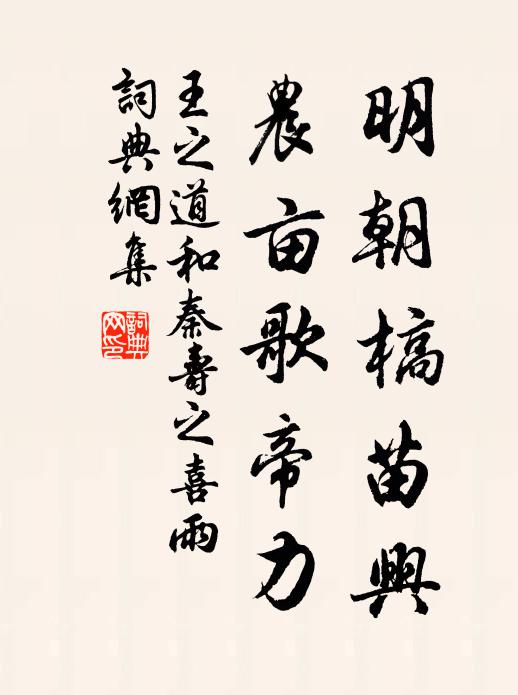 明朝槁苗興
農亩歌帝力
王之道和秦壽之喜雨
詞典網集
詞典
网印